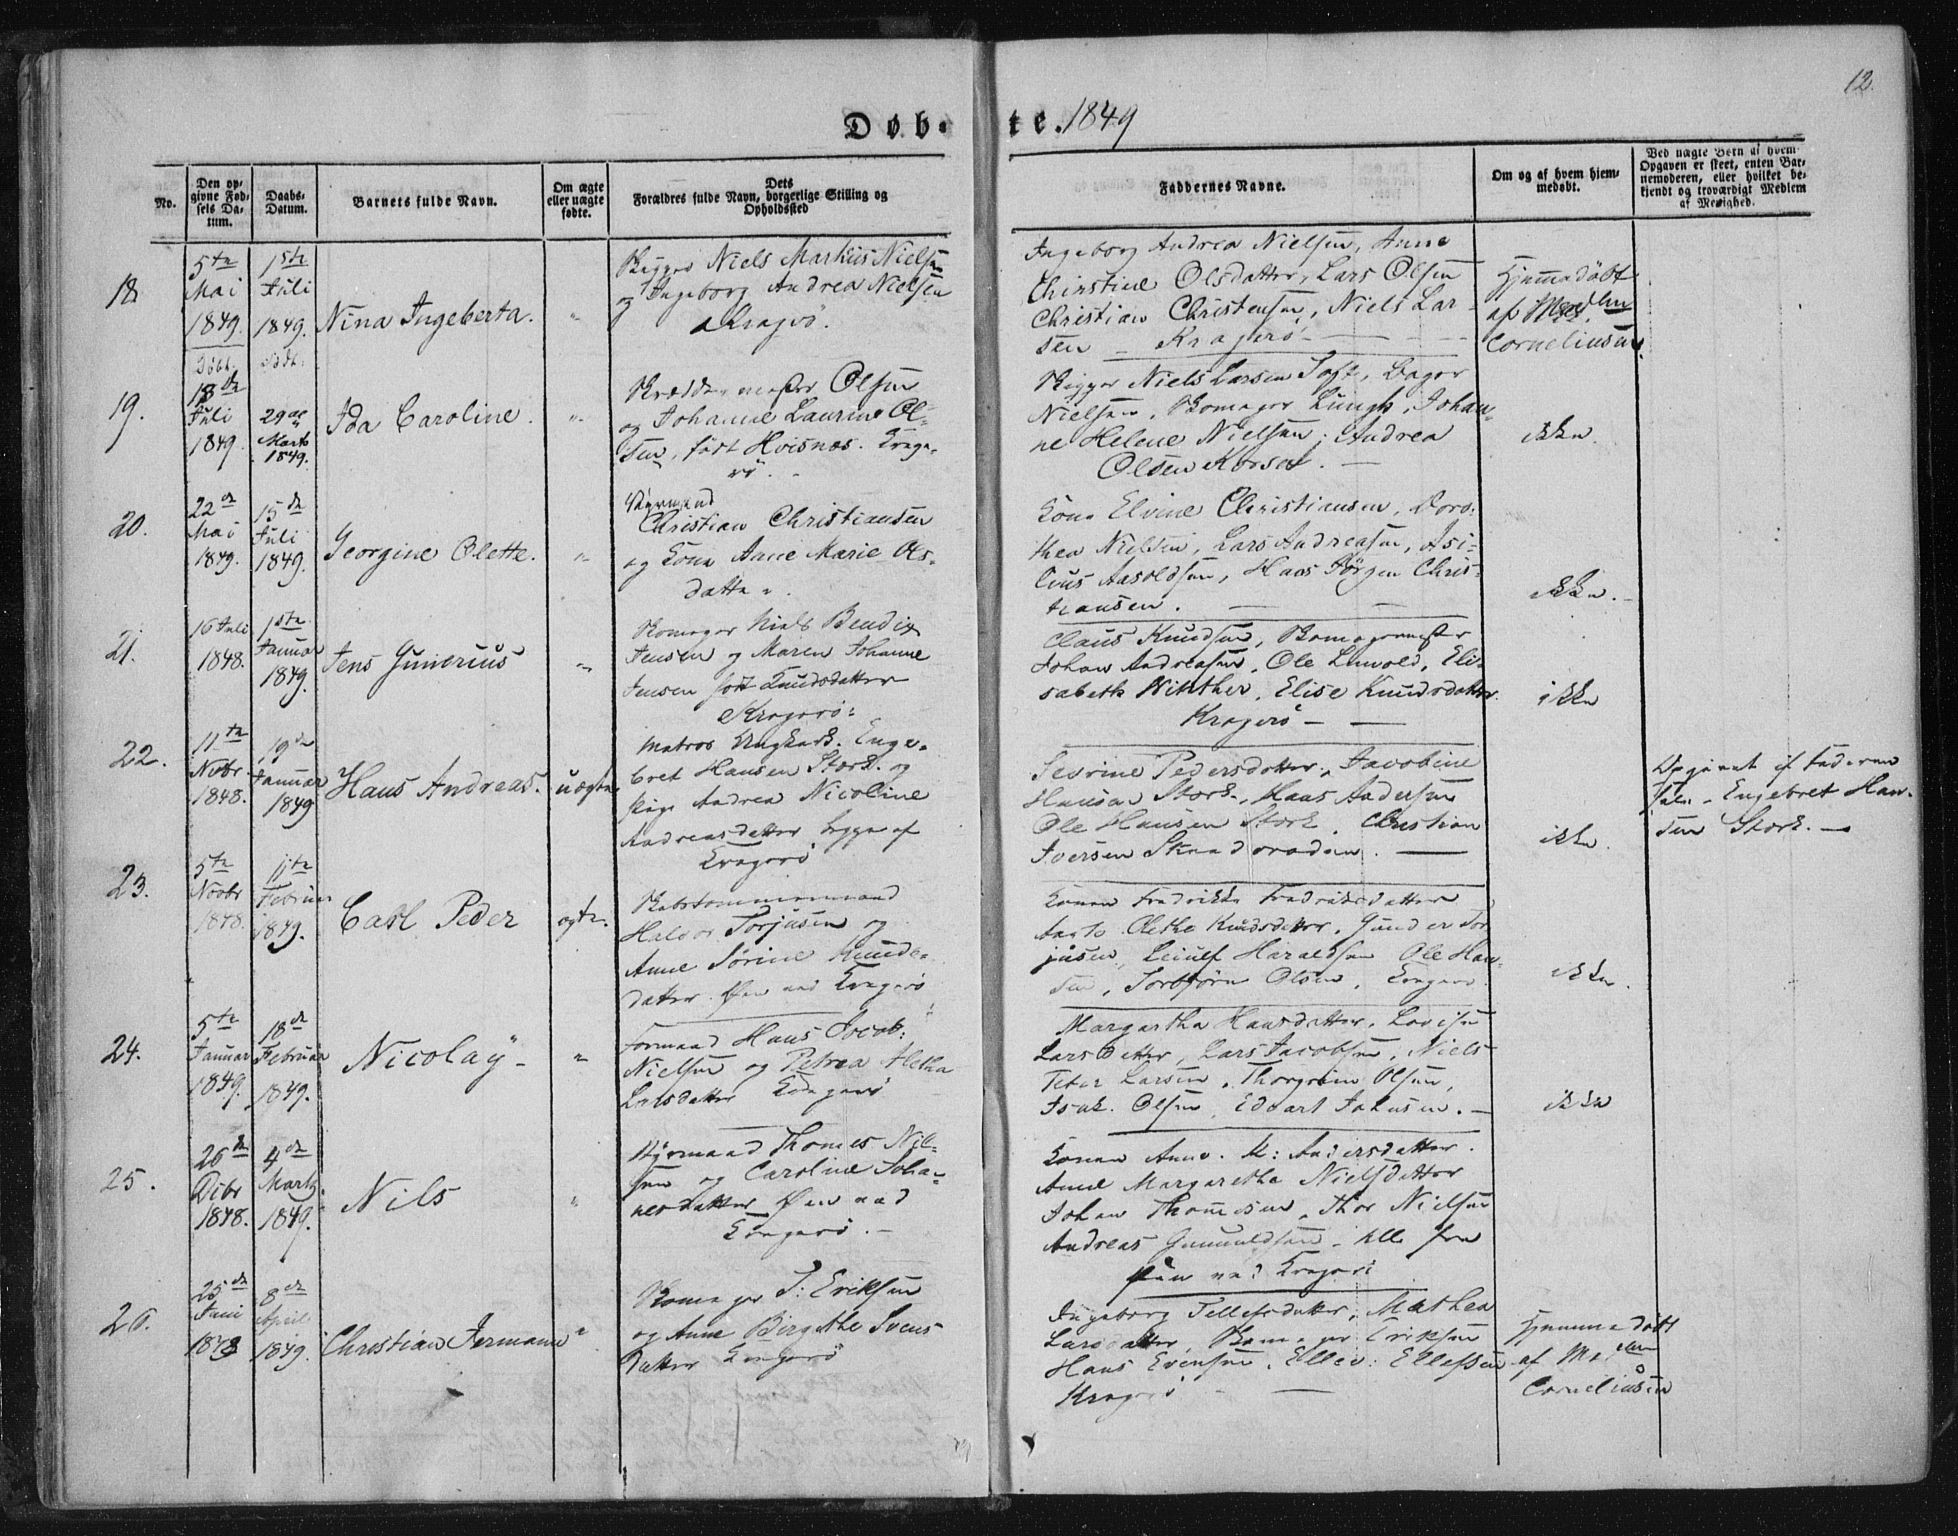 12.
Døb-te. 1849
No.
Den opgivne Fødsels Datum.
Daabs-Datum.
Barnets fulde Navn.
Om ægte eller uægte fødte.
Dets Forældres fulde Navn, borgerlige Stilling og Opholdssted
Faddernes Navne.
Om og af hvem hjemmedøbt.
Ved uægte Børn af hvem Opgaven er skeet, enten Barnemoderen, eller hvilket bekjendt og troværdigt Medlem af Menighed.
18
5te
Mai
1849.
1ste
Juli
1849.
Nina Ingeberta.
"
Niels Markus Nielsen
og Ingeborg Andrea Nielsen
Kragerö.
Ingeborg Andrea Nielsen, Anne
Christine Olsdatter, Lars Olsen
Christian Christensen, Niels Lar-
sen - Kragerö -
Hjemmedöbt
af Mad
Corneliusen.
19.
18de
Juli
1849.
29de
Marts
1849.
Ida Caroline.
"
Olsen
og Johanne Laurine Ol-
sen, född Hvisnæs. Krage-
rö.
Niels Larsen Toft, Bager
Nielsen, Lungh, Johan-
ne Helene Nielsen, Andrea
Olsen
ikke.
20.
22de
Mai
1849.
15de
Juli
1849.
Georgine Olette.
"
Styrmand
Christian Christiansen
og Kone Anne Marie Ols-
datter.
Kone Elvine Christiansen, Doro-
thea Nielsen, Lars Andreasen, Asi-
lius Aasoldsen, Hans Jörgen Chris-
tiansen.
ikke.
21.
16 Juli
1848.
1ste
Januar
1849.
Jens Gunerius
"
Niels Bendix
Jensen og Maren Johanne
Jensen född Knudsdatter
Kragerö.
Claus Knudsen,
Johan Andreasen, Ole Lunvold, Eli-
sabeth Winther, Elise Knudsdatter.
Kragerö -
ikke
22.
11te
Novbr
1848.
19de
Januar
1849
Hans Andreas.
uægte.
Matros Ungkarl. Enge-
bret Hansen Stork og
Pige Andrea Nicoline
Andreasdatter begge af
Kragerö
Sevrine Pedersdatter, Jacobine
Hansen Stork, Hans Andersen
Ole Hansen Stork, Christian
Iversen
ikke.
Opgivet af Faderen
Engebret Han-
sen Stork. -
23.
5te
Novbr
1848.
11te
Februar
1849.
Carl Peder
ægte.
Halvor Torjusen og
Anne Sörine Knuds-
datter. Öen ved Kragerö
Konen Fredrikke Fredriksdatter
Oletke Knudsdatter, Gunder Tor-
jusen, Leiulf Haraldsen Ole Han-
sen, Torbjörn Olsen, Kragerö.
ikke.
24.
5te
Januar
1849.
18de
Februar
1849.
Nicolay -
"
Formand Hans Jacob
Nielsen og Petrea Aletha
Larsdatter Kragerö
Margartha Hansdatter, Lovise
Larsdatter, Lars Jacobsen, Niels
Peter Larsen, Thorgrim Olsen,
Isak Olsen, Edvart Johnsen. -
ikke
25.
26de
Dcbr
1848.
4de
Marts
1849.
Nils
"
Styrmand Thomes Nil-
sen og Caroline Joha-
nesdatter Öen ved
Kragerö. -
Konen Anne. K: Andersdatter.
Anne Margarethe Nielsdatter
Johan Thommesen, Thor Nielsen
Andreas Gunuldsen - Alle fra
Öen ved Kragerö
26.
25de
Juni
1848
8de
April
1849.
Christian Jermann
"
T: Eriksen
og Anne Birgithe Svens-
datter Kragerö
Ingeborg Tellefsdatter, Mathea
Larsdatter, Eriksen
Hans Evensen, Ellev: Ellefsen
Kragerö -
Hjemmedöbt
af Mad
Corneliusen